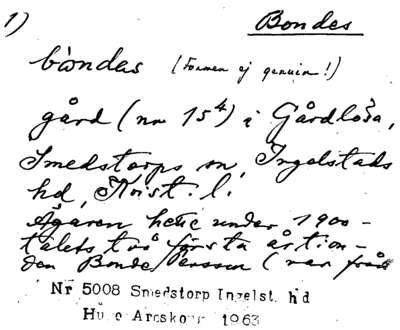 1)
Bondes
bondas (Formen ej genuin!)
gård (nr 15⁴) i Gårdlösa,
Smedstorps sn, Ingelstads
hd, Krist. l.
Ägaren hette under 1900-
talets två första årtion-
den Bonde Persson (var från
Nr 5008 Smedstorp Ingelst. hd
Hugo Areskoug 1963